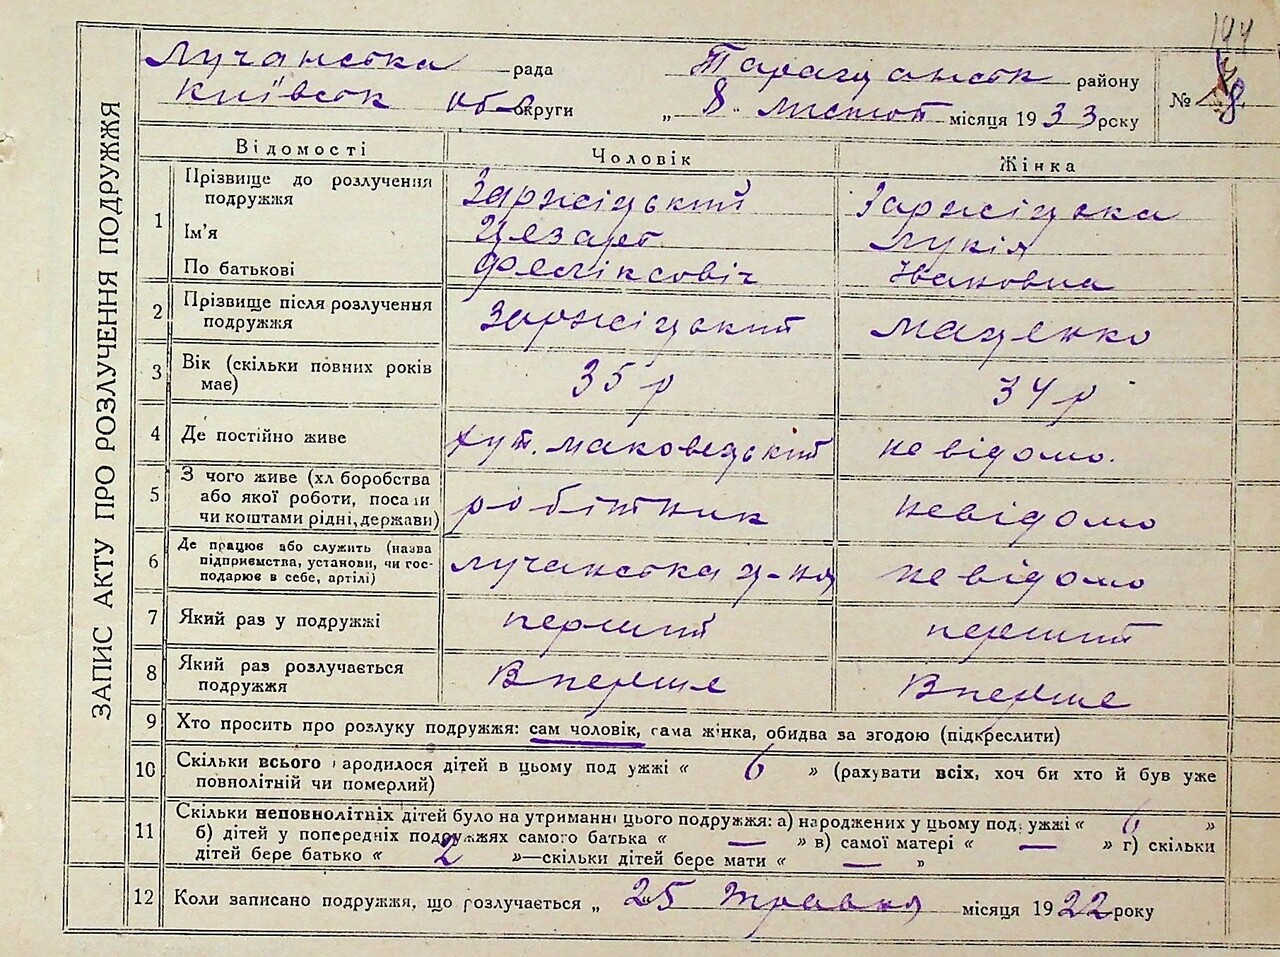 194
ЗАПИС АКТУ ПРО РОЗЛУЧЕННЯ ПОДРУЖЖЯ
Лучанська рада Таращанськ району
Київськ обл округи „ 8 „ листоп місяця 1933 року № 8
Відомості Чоловік Жінка
1 Прізвище до розлучення подружжя Заржіцький Заржіцька
Ім'я Цезар Лукія
По батькові Феліксовіч Івановна
2 Прізвище після розлучення подружжя Заржіцький Маценко
3 Вік (скільки повних років має) 35 р 34 р
4 Де постійно живе хут. Маковецький невідомо.
5 З чого живе (хл боробства або якої роботи, посади чи коштами рідні, держави) робітник невідомо
6 Де працює або служить (назва підприємства, установи, чи господарює в себе, артілі) Лучанська невідомо
7 Який раз у подружжі перший перший
8 Який раз розлучається подружжя Вперше Вперше
9 Хто просить про розлуку подружжя: сам чоловік, сама жінка, обидва за згодою (підкреслити)
10 Скільки всього народилося дітей в цьому под ужжі « 6 » (рахувати всіх, хоч би хто й був уже
повнолітній чи померлий)
11 Скільки неповнолітніх дітей було на утриманні цього подружжя: а) народжених у цьому подружжі « 6 »
б) дітей у попередніх подружжях самого батька « — » в) самої матері « — » г) скільки
дітей бере батько « 2 »—скільки дітей бере мати « — »
12 Коли записано подружжя, що розлучається „ 25 травня місяця 1922 року